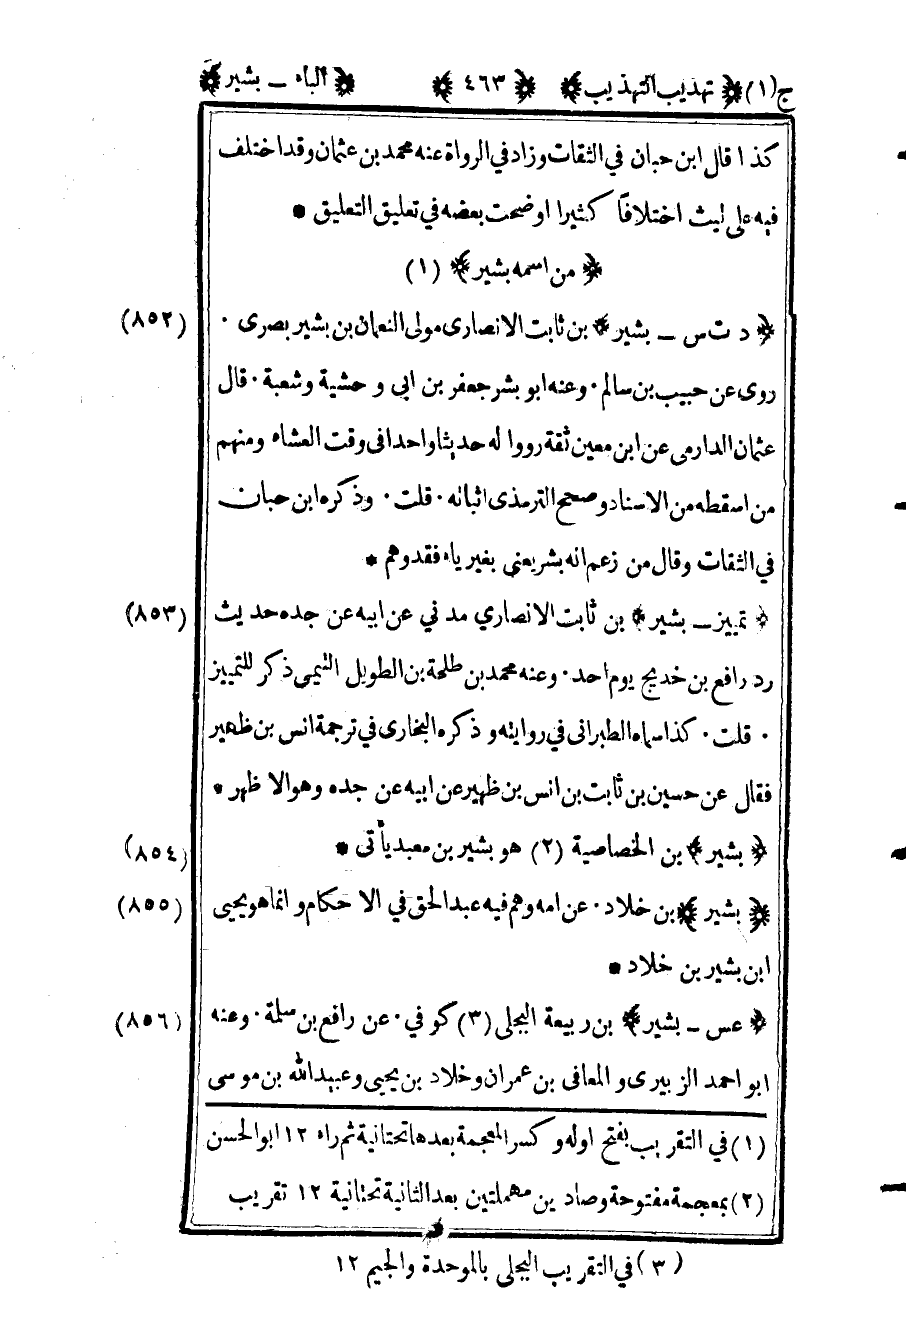 ج(١) ﴿ تهذيب التهذيب ﴾ ﴿ ٤٦٣ ﴾ ﴿ الباء ـ بشير ﴾
كذا قال ابن حبان في الثقات وزاد في الرواة عنه محمد بن عثمان وقد اختلف
فيه على ليث اختلافاً كثيرا اوضحت بعضه في تعليق التعليق *
﴿ من اسمه بشير ﴾ (١)
﴿ د ت س ـ بشير ﴾ بن ثابت الانصارى مولى النعمان بن بشير بصرى . (٨٥٢)
روى عن حبيب بن سالم . وعنه ابو بشر جعفر بن ابى وحشية وشعبة . قال
عثمان الدارمى عن ابن معين ثقة رووا له حديثا واحدا فى وقت العشاء ومنهم
من اسقطه من الاسناد وصحح الترمذى اثباته . قلت . وذكره ابن حبان
في الثقات وقال من زعم انه بشر يعنى بغير ياء فقد وهم *
﴿ تمييز ـ بشير ﴾ بن ثابت الانصاري مدني عن ابيه عن جده حديث (٨٥٣)
رد رافع بن خديج يوم احد . وعنه محمد بن طلحة بن الطويل التيمى ذكر للتمييز
. قلت . كذا سماه الطبرانى في روايته وذكره البخارى في ترجمة انس بن ظهير
فقال عن حسين بن ثابت بن انس بن ظهير عن ابيه عن جده وهو الاظهر *
﴿ بشير ﴾ بن الخصاصية (٢) هو بشير بن معبد يأتى * (٨٥٤)
﴿ بشير ﴾ بن خلاد . عن امه وهم فيه عبد الحق في الاحكام وانما هو يحيى (٨٥٥)
ابن بشير بن خلاد *
﴿ عس ـ بشير ﴾ بن ربيعة البجلى (٣) كوفي . عن رافع بن سلمة . وعنه (٨٥٦)
ابو احمد الزبيرى والمعافى بن عمران وخلاد بن يحيى وعبيد الله بن موسى
(١) في التقريب بفتح اوله وكسر المعجمة بعدها تحتانية ثم راء ١٢ ابو الحسن
(٢) بمعجمة مفتوحة وصادين مهملتين بعد الثانية تحتانية ١٢ تقريب
(٣) في التقريب البجلى بالموحدة والجيم ١٢